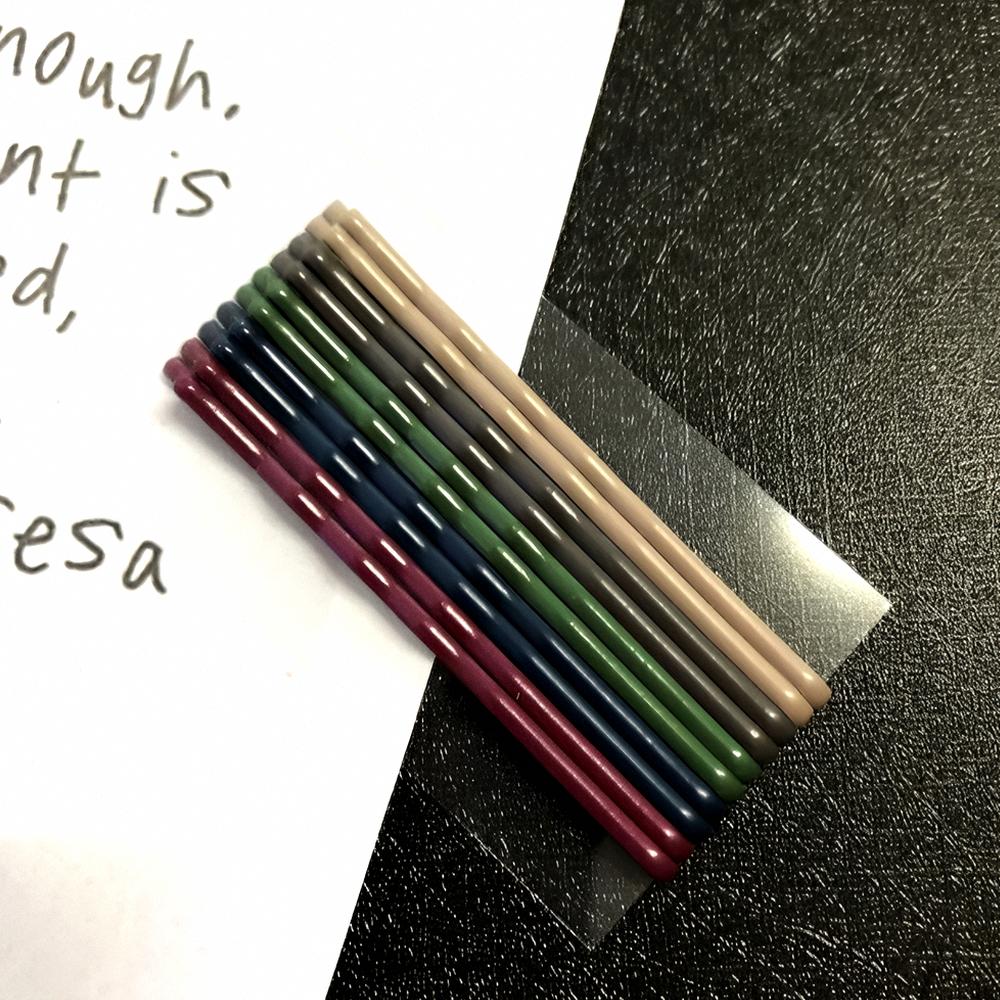 nough.
nt is
ed,
esa